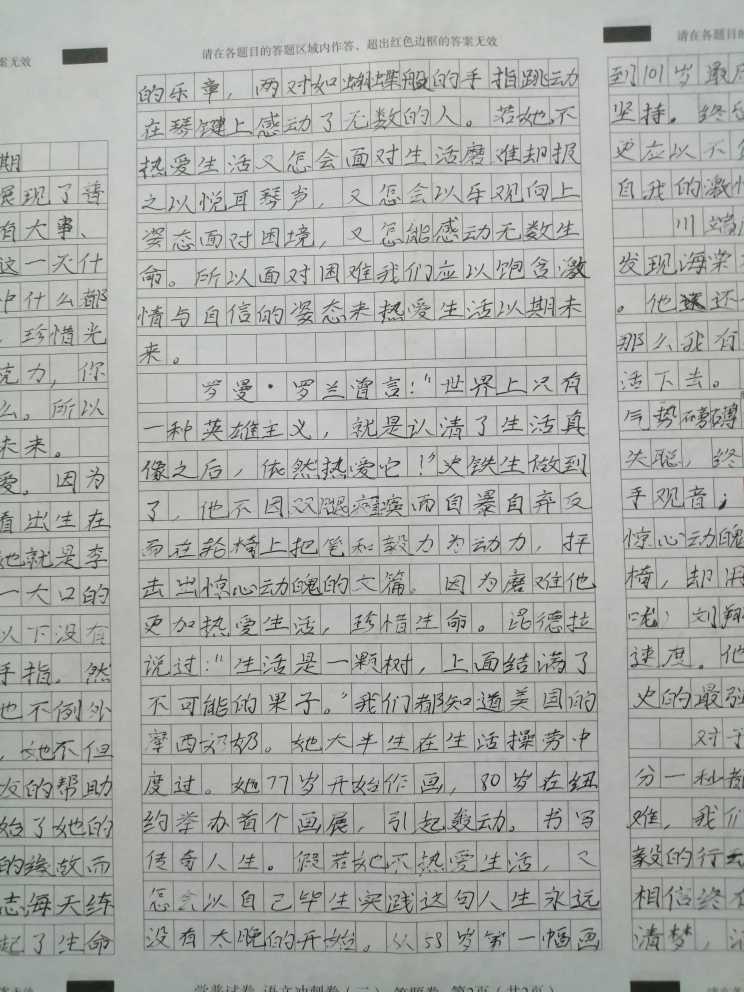 案无效
期
展现了
有大事、
这一天什
中什么都
珍惜光
克力，你
么。所以
未来。
爱。因为
看出生在
她就是李
一大口的
以下没有
手指。然
也不例外
，她不但
友的帮助
始了她的
的缘故而
志海天练
起了生命
请在各题目的答题区域内作答、超出红色边框的答案无效
的乐章，两对如蝴蝶般的手指跳动
在琴键上感动了无数的人。若她不
热爱生活又怎会面对生活磨难却报
之以悦耳琴声，又怎会以乐观向上
姿态面对困境，又怎能感动无数生
命。所以面对困难我们应以饱含激
情与自信的姿态来热爱生活以期未
来。
罗曼·罗兰曾言："世界上只有
一种英雄主义，就是认清了生活真
像之后，依然热爱它！"史铁生做到
了，他不因双腿瘫痪而自暴自弃反
而在轮椅上把笔和毅力为动力，抨
击出惊心动魄的文篇。因为磨难他
更加热爱生活，珍惜生命。昆德拉
说过："生活是一颗树，上面结满了
不可能的果子。"我们都知道美国的
摩西奶奶。她大半生在生活操劳中
度过。她77岁开始作画，80岁在纽
约举办首个画展，引起轰动。书写
传奇人生。假若她不热爱生活，又
怎会以自己毕生实践这句人生永远
没有太晚的开始。从58岁第一幅画
语文冲刺卷（二） 答题卷 第2页（共2页）
请在各题目的
到101岁最后
坚持。终
更应以不
自我的激情
川端
发现海棠
。他还
那么我有
活下去。
气势磅礴
失聪，终
手观音；
惊心动魄
椅，却用
咙；刘翔
速度。他
史的最强
对于
分一种
难，我们
毅的行
相信终
清梦，